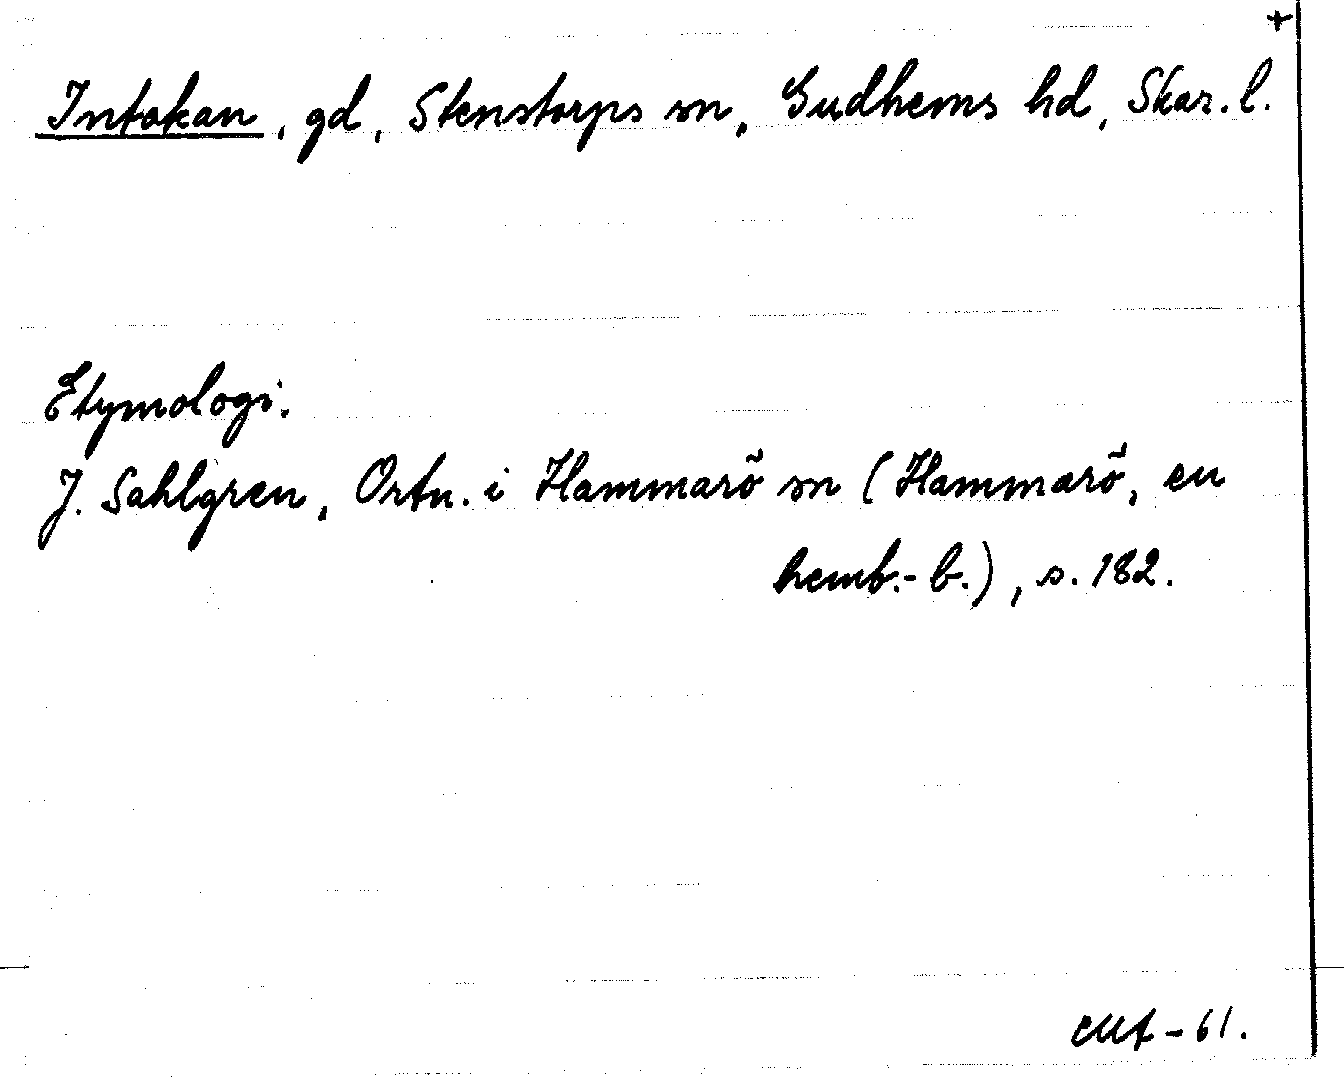 +
Intakan, gd, Stenstorps sn, Gudhems hd, Skar. l.
Etymologi.
J. Sahlgren, Ortn. i Hammarö sn (Hammarö, en
hemb.-b.), s. 182.
-61.